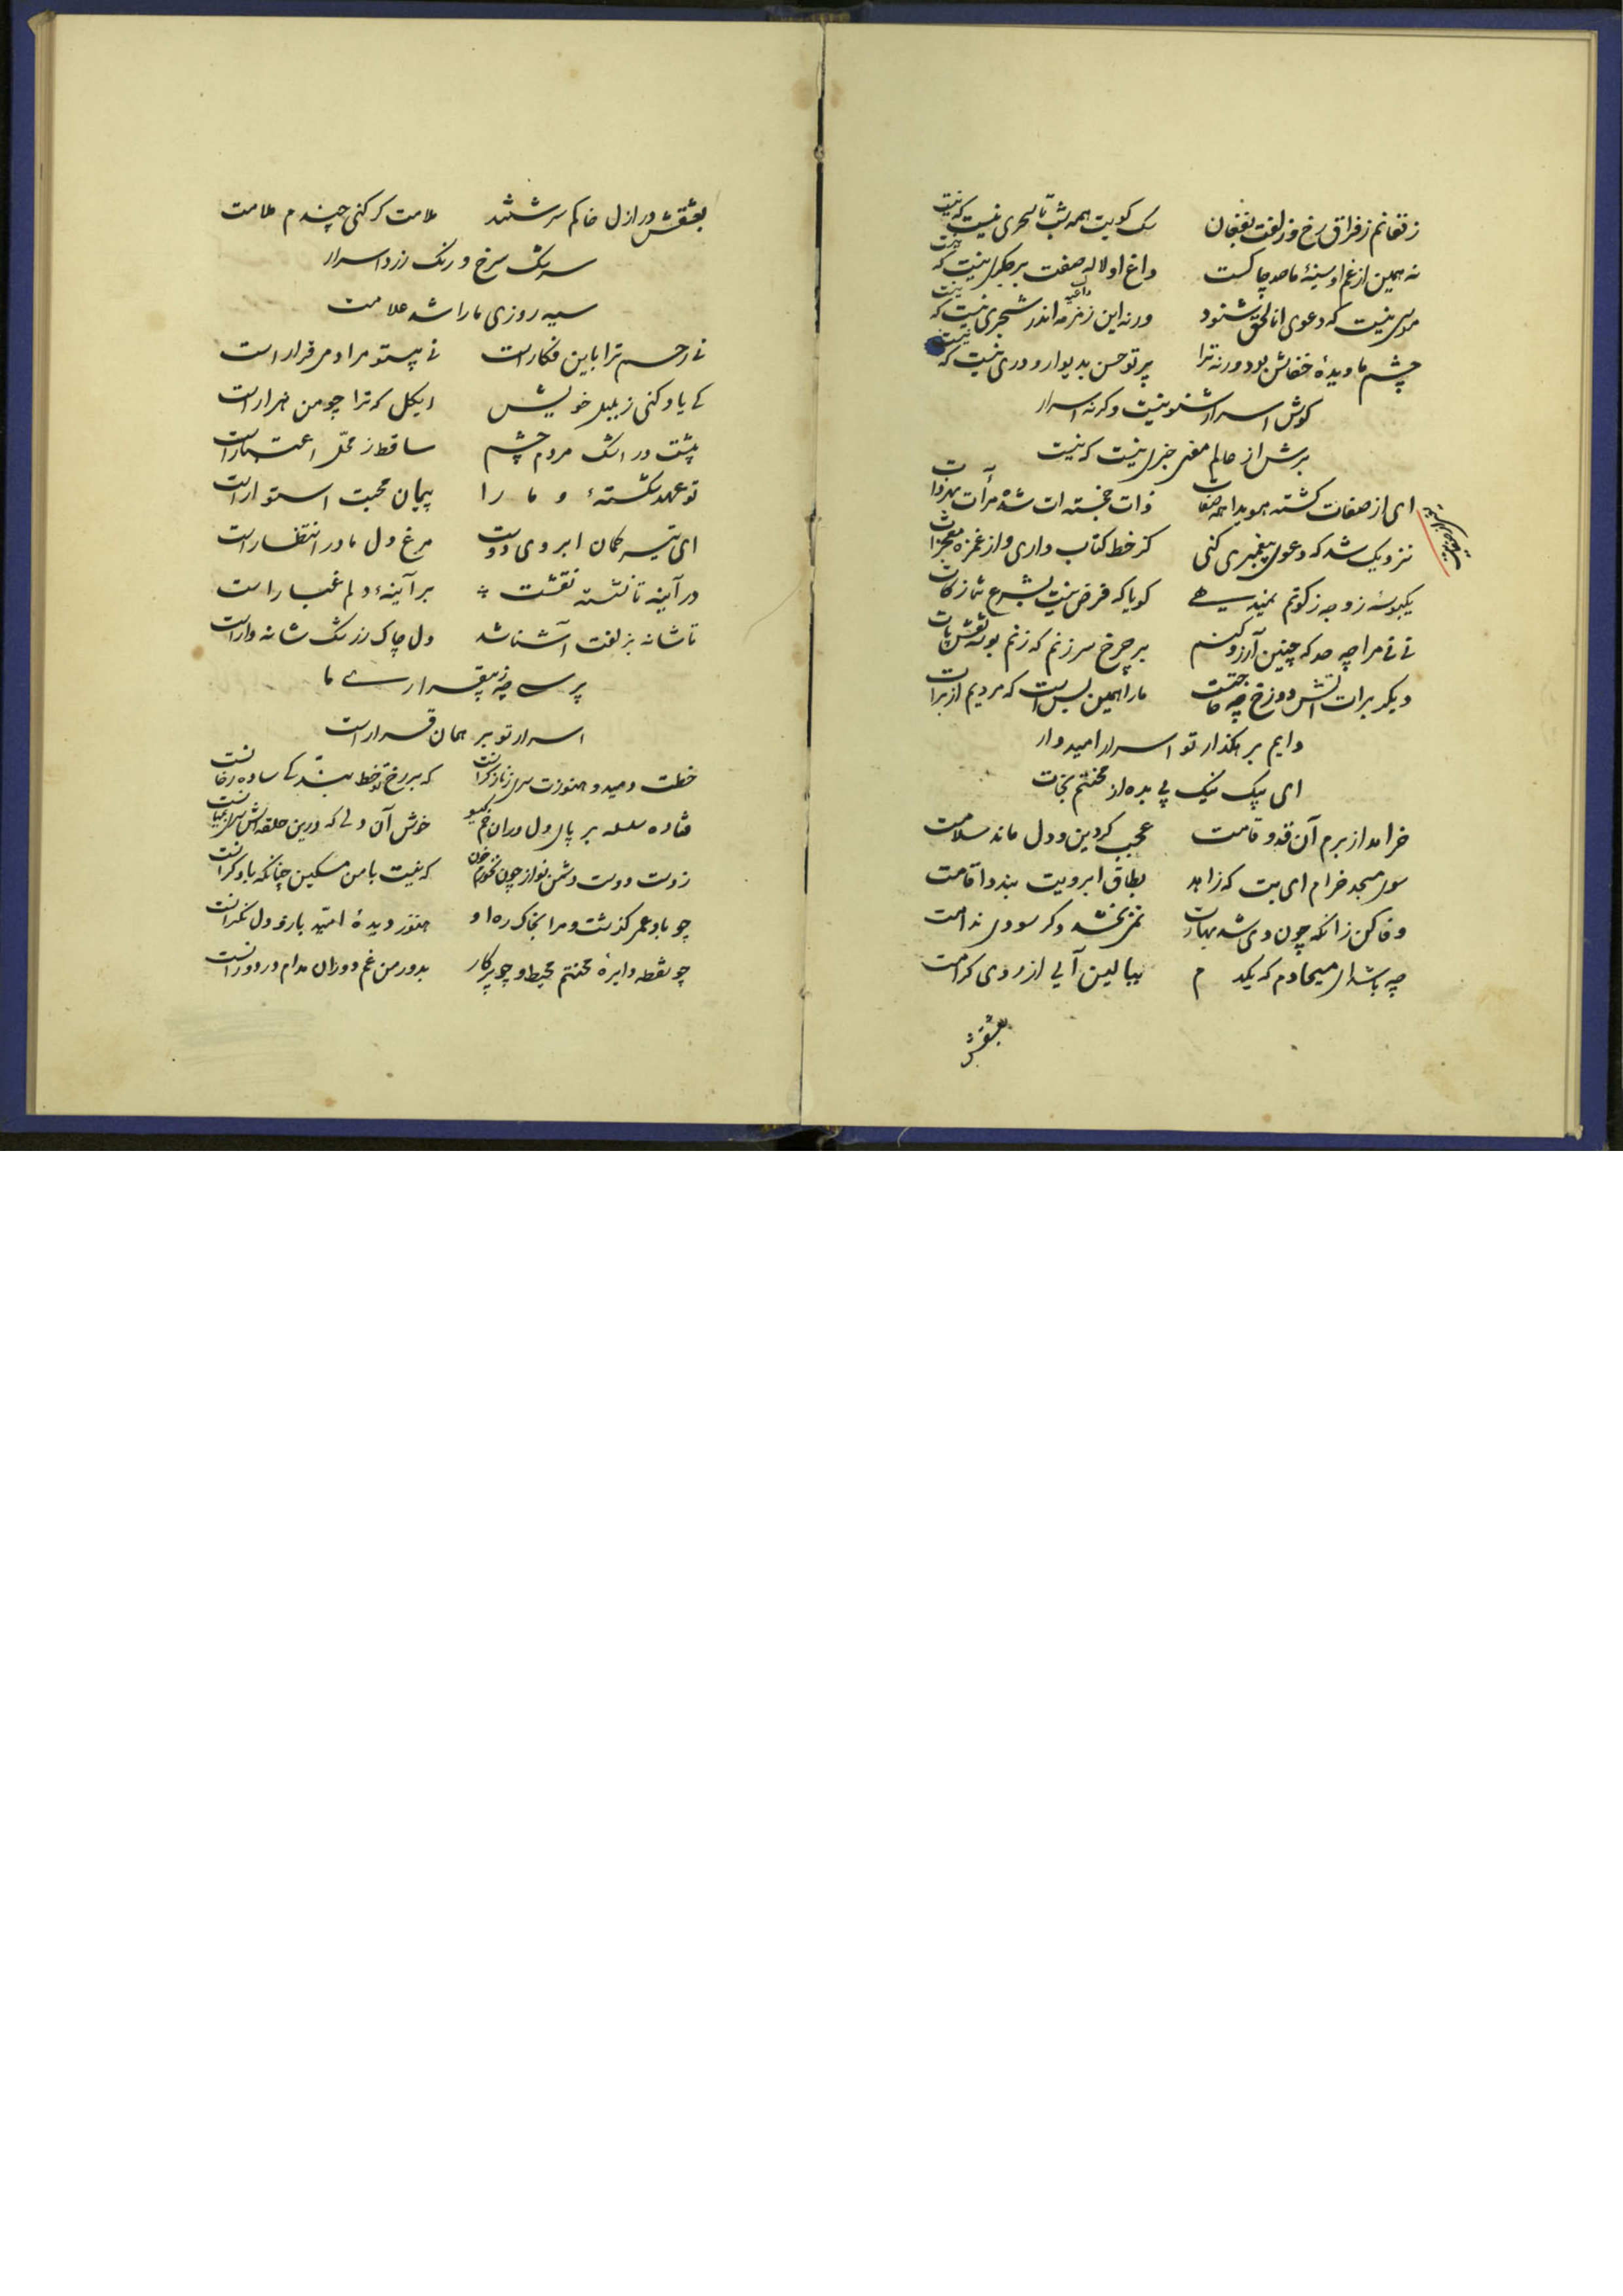 ز فغانم ز فراق رخ و زلفت بفغان سک کویت همه شب تا سحری نیست که نیست
نه همین از غم او سینهٔ ما صد چاکست داغ او لاله صفت بر جکری نیست که نیست
موسی نیست که دعوی انا الحق شنود ورنه این زمزمه اندر شجری نیست که نیست
چشم ما دیدهٔ خفاش بود ورنه ترا پرتو حسن بدیوار و دری نیست که نیست
کوش اسرار شنو نیست وکرنه اسرار
برش از عالم معنی خبری نیست که نیست
ای از صفات کشته هویدا همه صفات ذات خجسته ات شده مرآت بهر ذات
نزدیک شد که دعوی پیغمبری کنی کز خط کتاب داری و از غمزه معجزات
یکبوسه زو چه زکوتم نمیدهی کویا که فرض نیست بشرع شما زکات
نی نی مرا چه حد که چنین آرزو کنم بر چرخ سر زنم که زنم بوسه نقش پات
دیکر برات آتش دوزخ چه حاجتست ما را همین بس است که مردیم از برات
دایم بر هکذار تو اسرار امیدوار
ای پیک نیک پی بده از محنتم نجات
خرامد از برم آن قد و قامت عجب کر دین و دل ماند سلامت
سوی مسجد خرام ای بت که زاهد بطاق ابرویت بندد اقامت
وفا کن زانکه چون دی شد بهارت نمی بخشد دکر سودی ندامت
چه باشد ای مسیحا دم که یکدم ببالین آیی از روی کرامت
بعشقش
بعشقش در ازل خاکم سرشتند ملامت کر کنی چندم ملامت
سرشک سرخ و رنک زرد اسرار
سیه روزی ما را شد علامت
نی رحم ترا باین فکار است نی بیتو مرا دمی قرار است
کی یاد کنی ز بلبل خویش ایکل که ترا چو من هزار است
پیشت در اشک مردم چشم ساقط ز محل اعتبار است
تو عهد شکستهٔ و ما را پیمان محبت استوار است
ای تیر کمان ابروی دوست مرغ دل ما در انتظار است
در آینه تا نشسته نقشت بر آینهٔ دلم غبار است
تا شانه بزلفت آشنا شد دل چاک ز رشک شانه وار است
پرسی چه ز بیقراری ما
اسرار تو بر همان قرار است
خطت دمید و هنوزت سری ز ناز کرانست که بر رخ تو خط بندکی ساده رخانست
فتاده سلسله بر پای دل در آن خم کیسو خوش آن دلی که درین حلقه اش سری بمیانست
ز دست دوست دشمن نواز چون نخورم خون که نیست با من مسکین چنانکه با دکرانست
چو باد عمر کذشت و مرا بخاک ره او هنوز دیدهٔ امید باز و دل نکرانست
چو نقطه دایرهٔ محنتم محیط و چو پرکار بدور من غم دوران مدام در دورانست